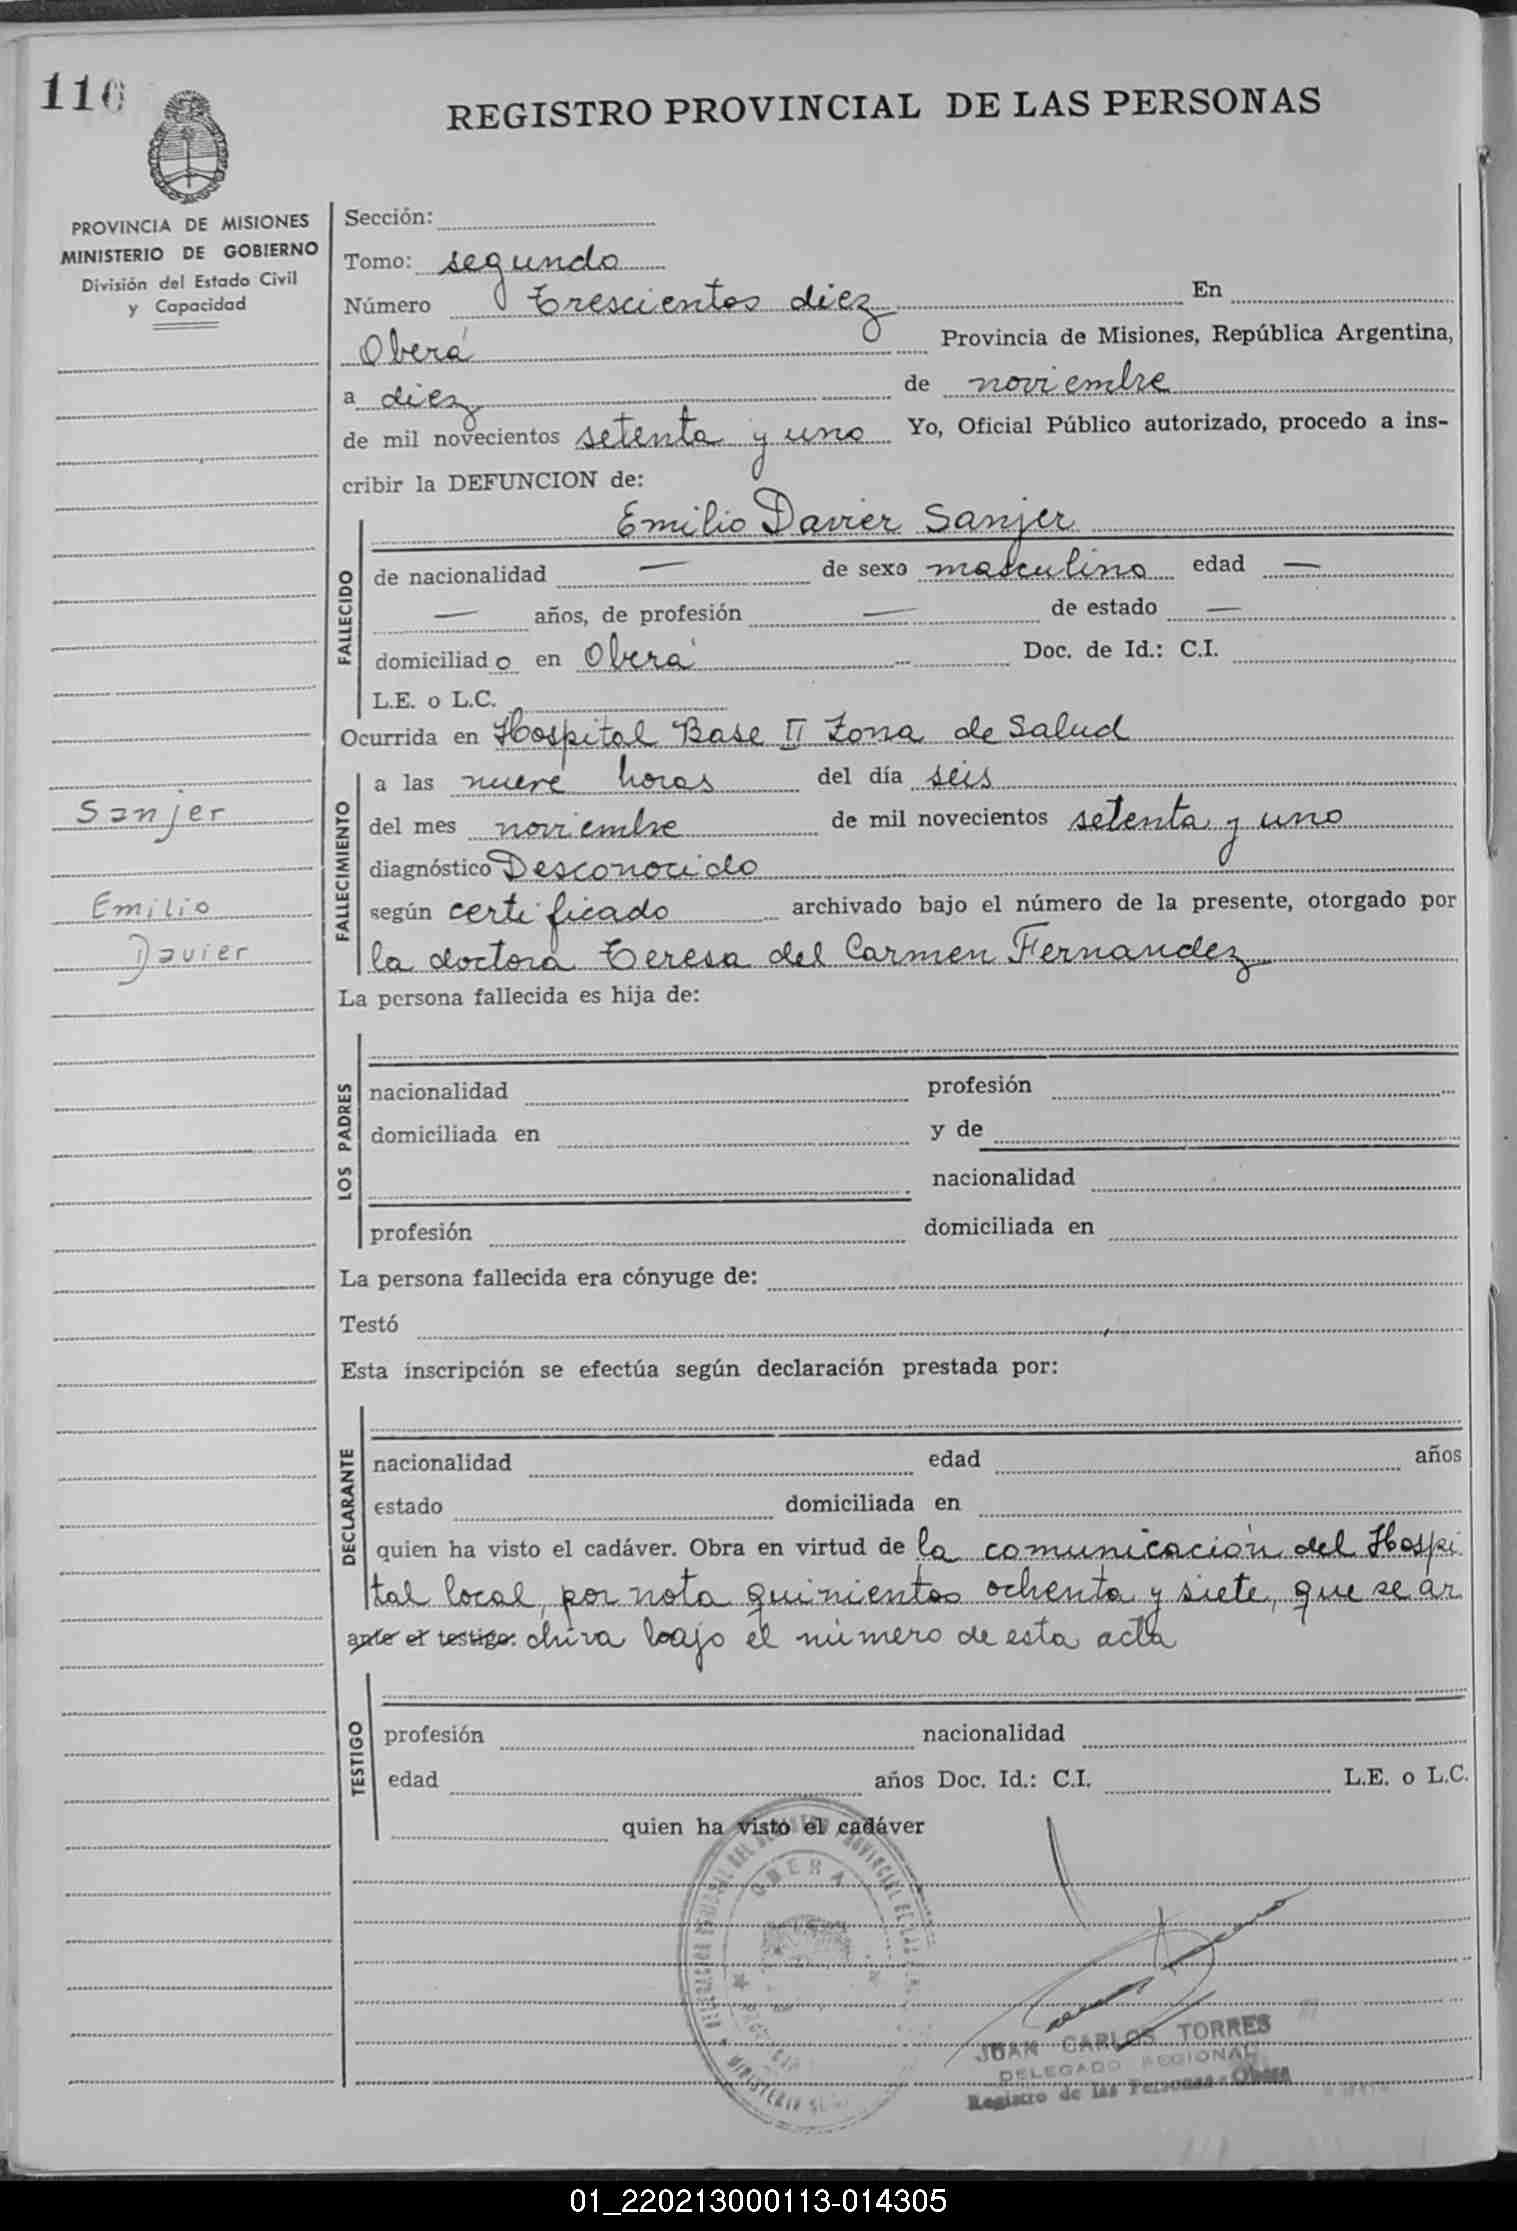 110
REGISTRO PROVINCIAL DE LAS PERSONAS
PROVINCIA DE MISIONES
MINISTERIO DE GOBIERNO
División del Estado Civil
y Capacidad
Sección:
Tomo: segundo
Número Trescientos diez En
Oberá Provincia de Misiones, República Argentina,
a diez de noviembre
de mil novecientos setenta y uno Yo, Oficial Público autorizado, procedo a ins-
cribir la DEFUNCION de:
Emilio Davier Sanjer
FALLECIDO
de nacionalidad — de sexo masculino edad —
— años, de profesión — de estado —
domiciliado en Oberá Doc. de Id.: C.I.
L.E. o L.C.
Ocurrida en Hospital Base II Zona de Salud
FALLECIMIENTO
a las nueve horas del día seis
del mes noviembre de mil novecientos setenta y uno
diagnóstico Desconocido
según certificado archivado bajo el número de la presente, otorgado por
la doctora Teresa del Carmen Fernandez
Sanjer
Emilio
Davier
La persona fallecida es hija de:
LOS PADRES
nacionalidad profesión
domiciliada en y de
nacionalidad
profesión domiciliada en
La persona fallecida era cónyuge de:
Testó
Esta inscripción se efectúa según declaración prestada por:
DECLARANTE
nacionalidad edad años
estado domiciliada en
quien ha visto el cadáver. Obra en virtud de la comunicación del Hospi
tal local, por nota quinientos ochenta y siete, que se ar
ante el testigo: chiva bajo el número de esta acta
TESTIGO
profesión nacionalidad
edad años Doc. Id.: C.I. L.E. o L.C.
quien ha visto el cadáver
OBERA
JUAN CARLOS TORRES
DELEGADO REGIONAL
Registro de las Personas - Oberá
01_220213000113-014305